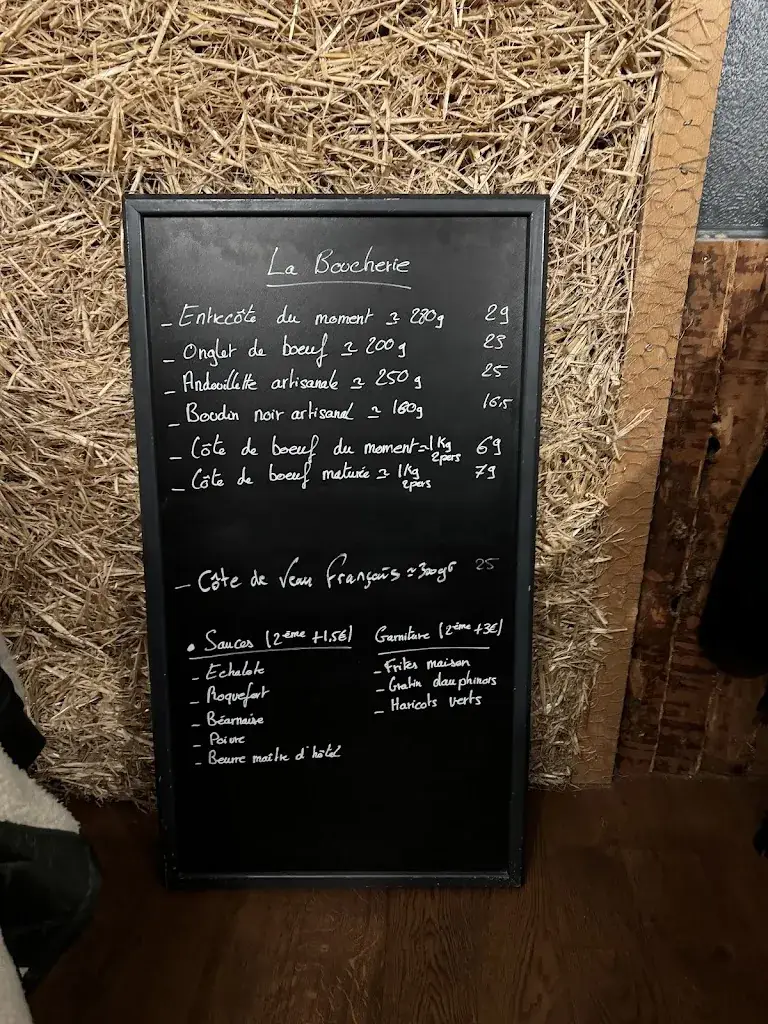 La Boucherie
- Entrecôte du moment ≃ 280g 29
- Onglet de boeuf ≃ 200g 23
- Andouillette artisanale ≃ 250g 25
- Boudin noir artisanal ≃ 160g 16,5
- Côte de boeuf du moment ≃ 1Kg 2pers 69
- Côte de boeuf maturée ≃ 1Kg 2pers 79
- Côte de Veau Français ≃ 300gr 25
• Sauces (2ème +1,5€)
- Echalote
- Roquefort
- Béarnaise
- Poivre
- Beurre maître d'hôtel
Garniture (2ème +3€)
- Frites maison
- Gratin dauphinois
- Haricots verts